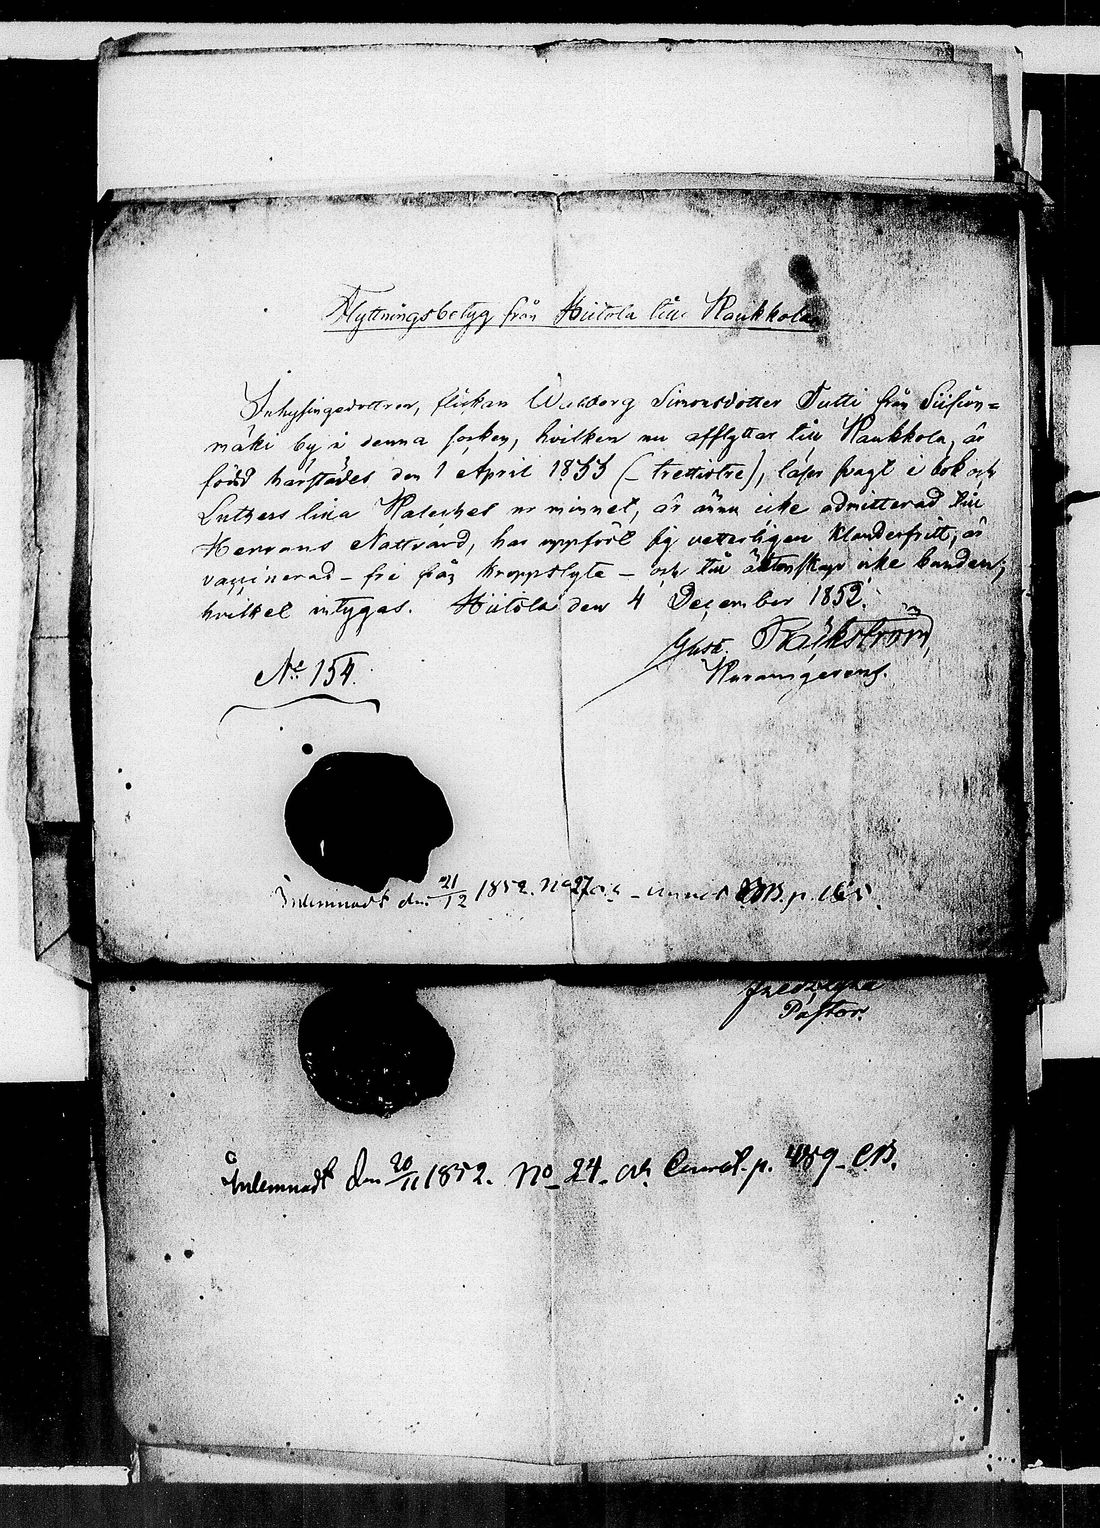 Flyttningsbetyg från Hiitola till Kaukkola
Inhysingsdottren, flickan Walborg Simonsdotter Tutti från Siision=
mäki by i denna socken, hvilken nu afflyttar till Kaukkola, är
född härstädes den 1 April 1833 (- trettiotre), läser svagt i bok och
Luthers lilla Kateches ur minnet, är ännu icke admitterad till
Herrans Nattvard, har uppfört sig veterligen klanderfritt, är
vaccinerad - fri från kroppslyte - och till äktenskap icke bunden;
hvilket intygas. Hiitola den 4 December 1852.
Gust.
N:o 154.
Inlemnadt den 21/12 1852. No 27 och p. 165.
Pastor.
Inlemnadt den 20/11 1852. No 24. och p. 489 - CB.